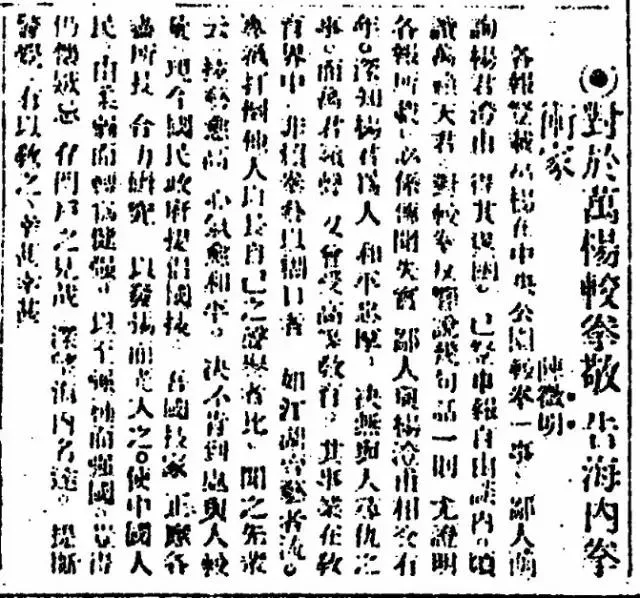 (●)對於萬楊較拳敬告海內拳
術家
陳微明
各報登載萬楊在中央公園較拳一事、鄙人前
詢楊君澄甫、得其復函、已登申報自由談內、頃
讀萬籟大君、對較拳反響說幾句話一則、尤證明
各報所載、必係傳聞失實、鄙人與楊澄甫相交有
年、深知楊君為人、和平忠厚、決無與人尋仇之
事、而萬君聲、又曾受高等教育、其事業在教
育界中、非以餬口者、如江湖賣藝者流。
專打倒他人以長自己之聲譽者比、聞之先輩
云、技藝愈高、心氣愈和平。決不肯到處與人較
現今國民政府提倡國技、吾國技家、正應各
盡所長、合力研究、以發揚而光大之。使中國人
民、由柔弱而轉為健強、以至強種而強國、豈得
仍懷忌、存門戶之見哉、深望海內名達、提撕
警覺、有以教之、幸甚幸甚